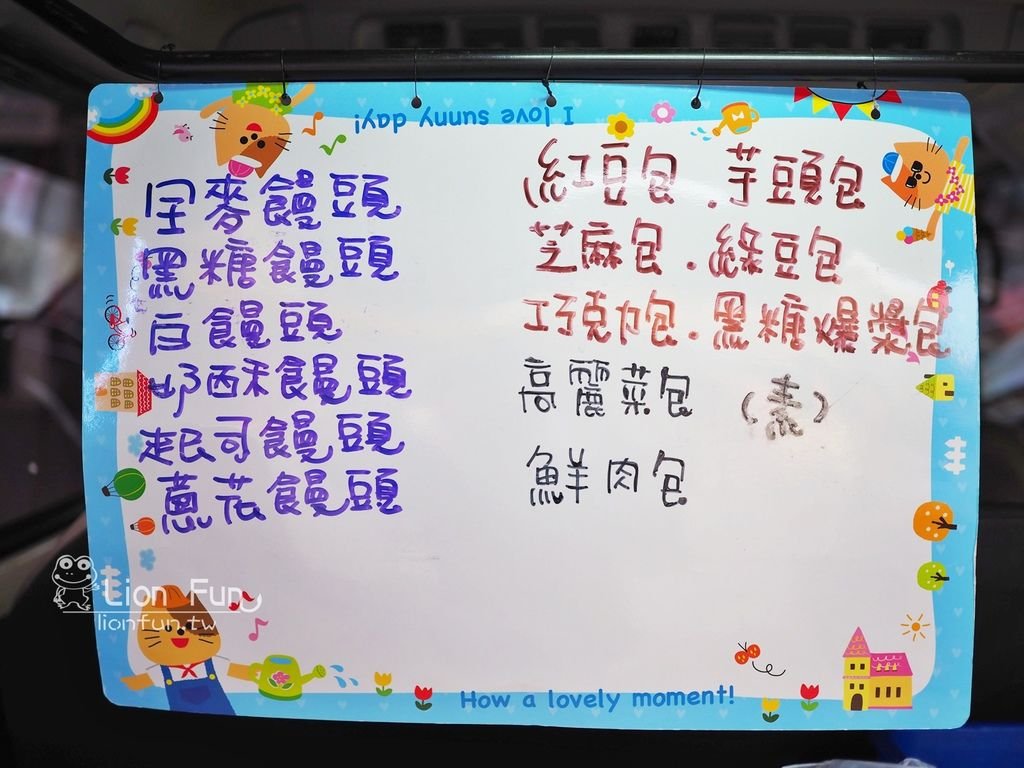 I love sunny day!
全麥饅頭
黑糖饅頭
白饅頭
吵西禾饅頭
起司饅頭
蔥花饅頭
紅豆包.芋頭包
芝麻包.綠豆包
巧克力包.黑糖爆漿包
高麗菜包 (素)
鮮肉包
Lion Fun
lionfun.tw
How a lovely moment!